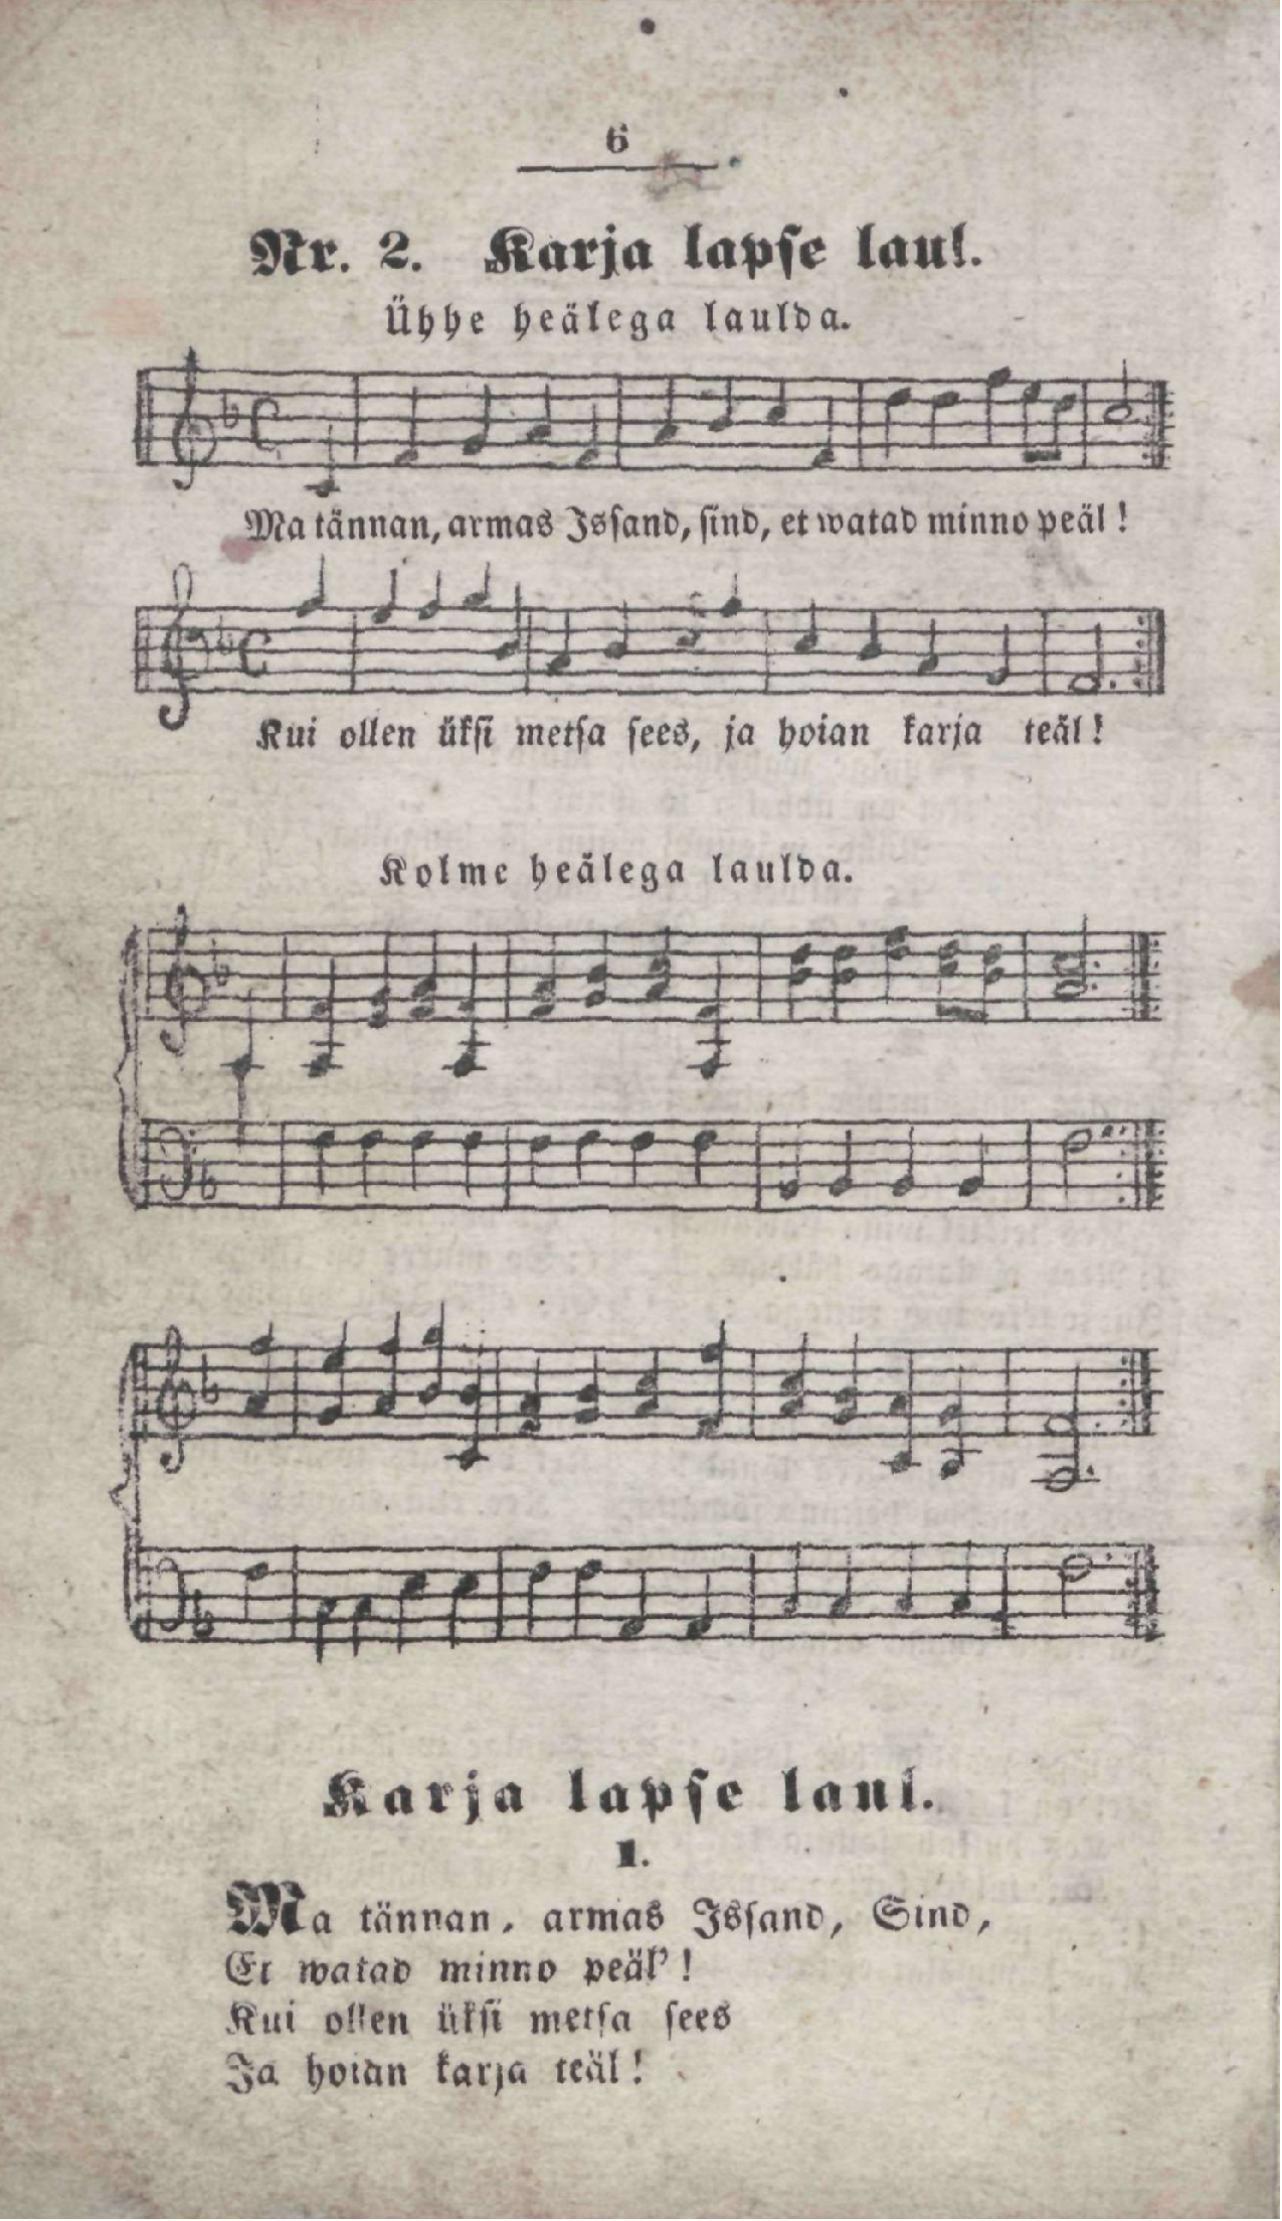 6
Nr. 2. Karja lapſe laul.
Ühhe heälega laulda.
Ma tännan, armas Jsſand, ſind, et watad minno peäl!
Kui ollen ükſi metſa ſees, ja hoian karja teäl!
Kolme heälega laulda.
Karja lapſe laul.
1.
Ma tännan, armas Jsſand, Sind,
Et watad minno peäl'!
Kui ollen ükſi metſa ſees
Ja hoian karja teäl!